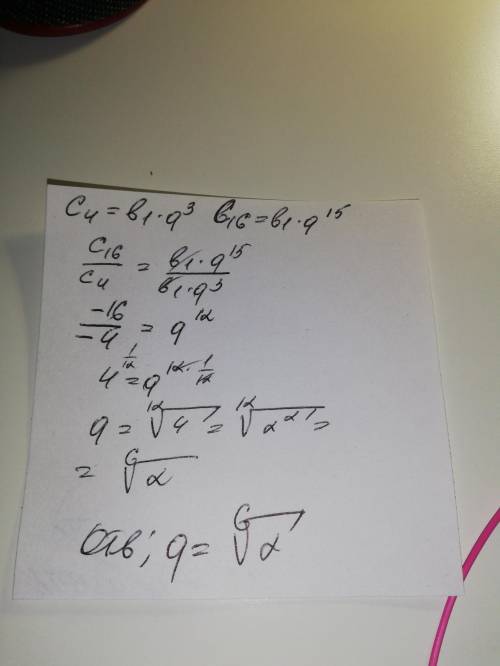 C₄ = в₁ · q³ в₁₆ = в₁ · q¹⁵
C₁₆/C₄ = в₁ · q¹⁵ / в₁ · q³
-16/-4 = q¹²
4^(1/12) = q^(12 · 1/12)
q = ¹²√4 = ¹²√2² =
= ⁶√2
Отв; q = ⁶√2